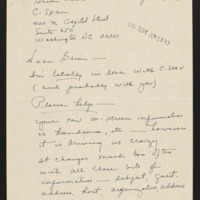 C-Span
400 N Capitol Street
Suite 650
Washington DC 20001
Dear Brian -
I'm totally in love with C-SPAN
(and probably with you)
Please help -
your new on-screen information
is handsome, etc -- however
it is driving us crazy
It changes much too often
with all those bits of
information -- subject, guest,
address, host, organization, address